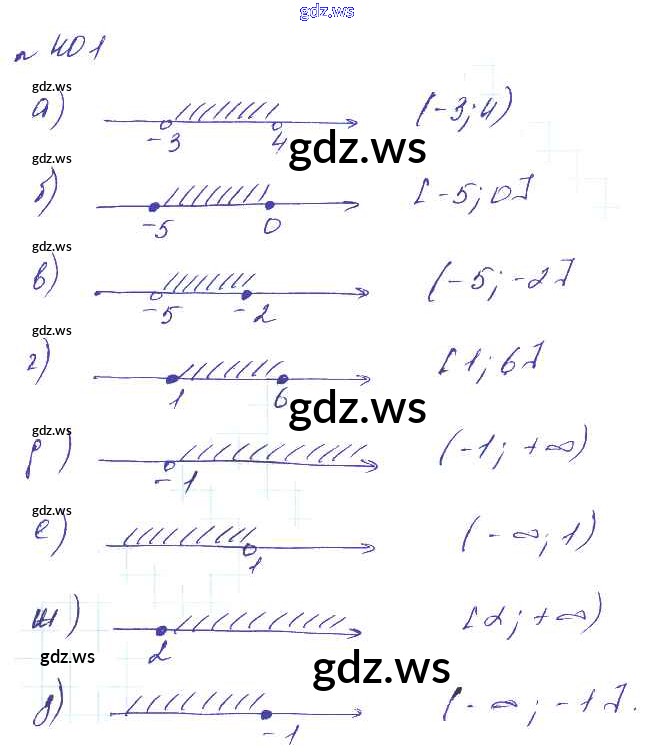 gdz.ws
№ 401
gdz.ws
а) -3 4 (-3; 4)
gdz.ws
gdz.ws
б) -5 0 [-5; 0]
gdz.ws
в) -5 -2 (-5; -2]
gdz.ws
г) 1 6 [1; 6]
gdz.ws
gdz.ws
д) -1 (-1; +∞)
gdz.ws
е) 1 (-∞; 1)
gdz.ws
ж) 2 [2; +∞)
gdz.ws
gdz.ws
з) -1 (-∞; -1].